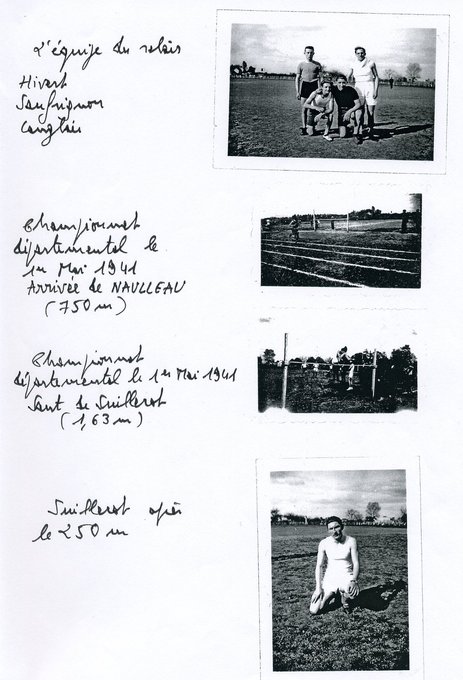 L'équipe du relais
Hivert
Sauvignon
Langlais
Championnat
départemental le
1er Mai 1941
Arrivée de NAULLEAU
(750 m)
Championnat
départemental le 1er Mai 1941
Saut de Suillerot
(1,63 m)
Suillerot après
le 250 m